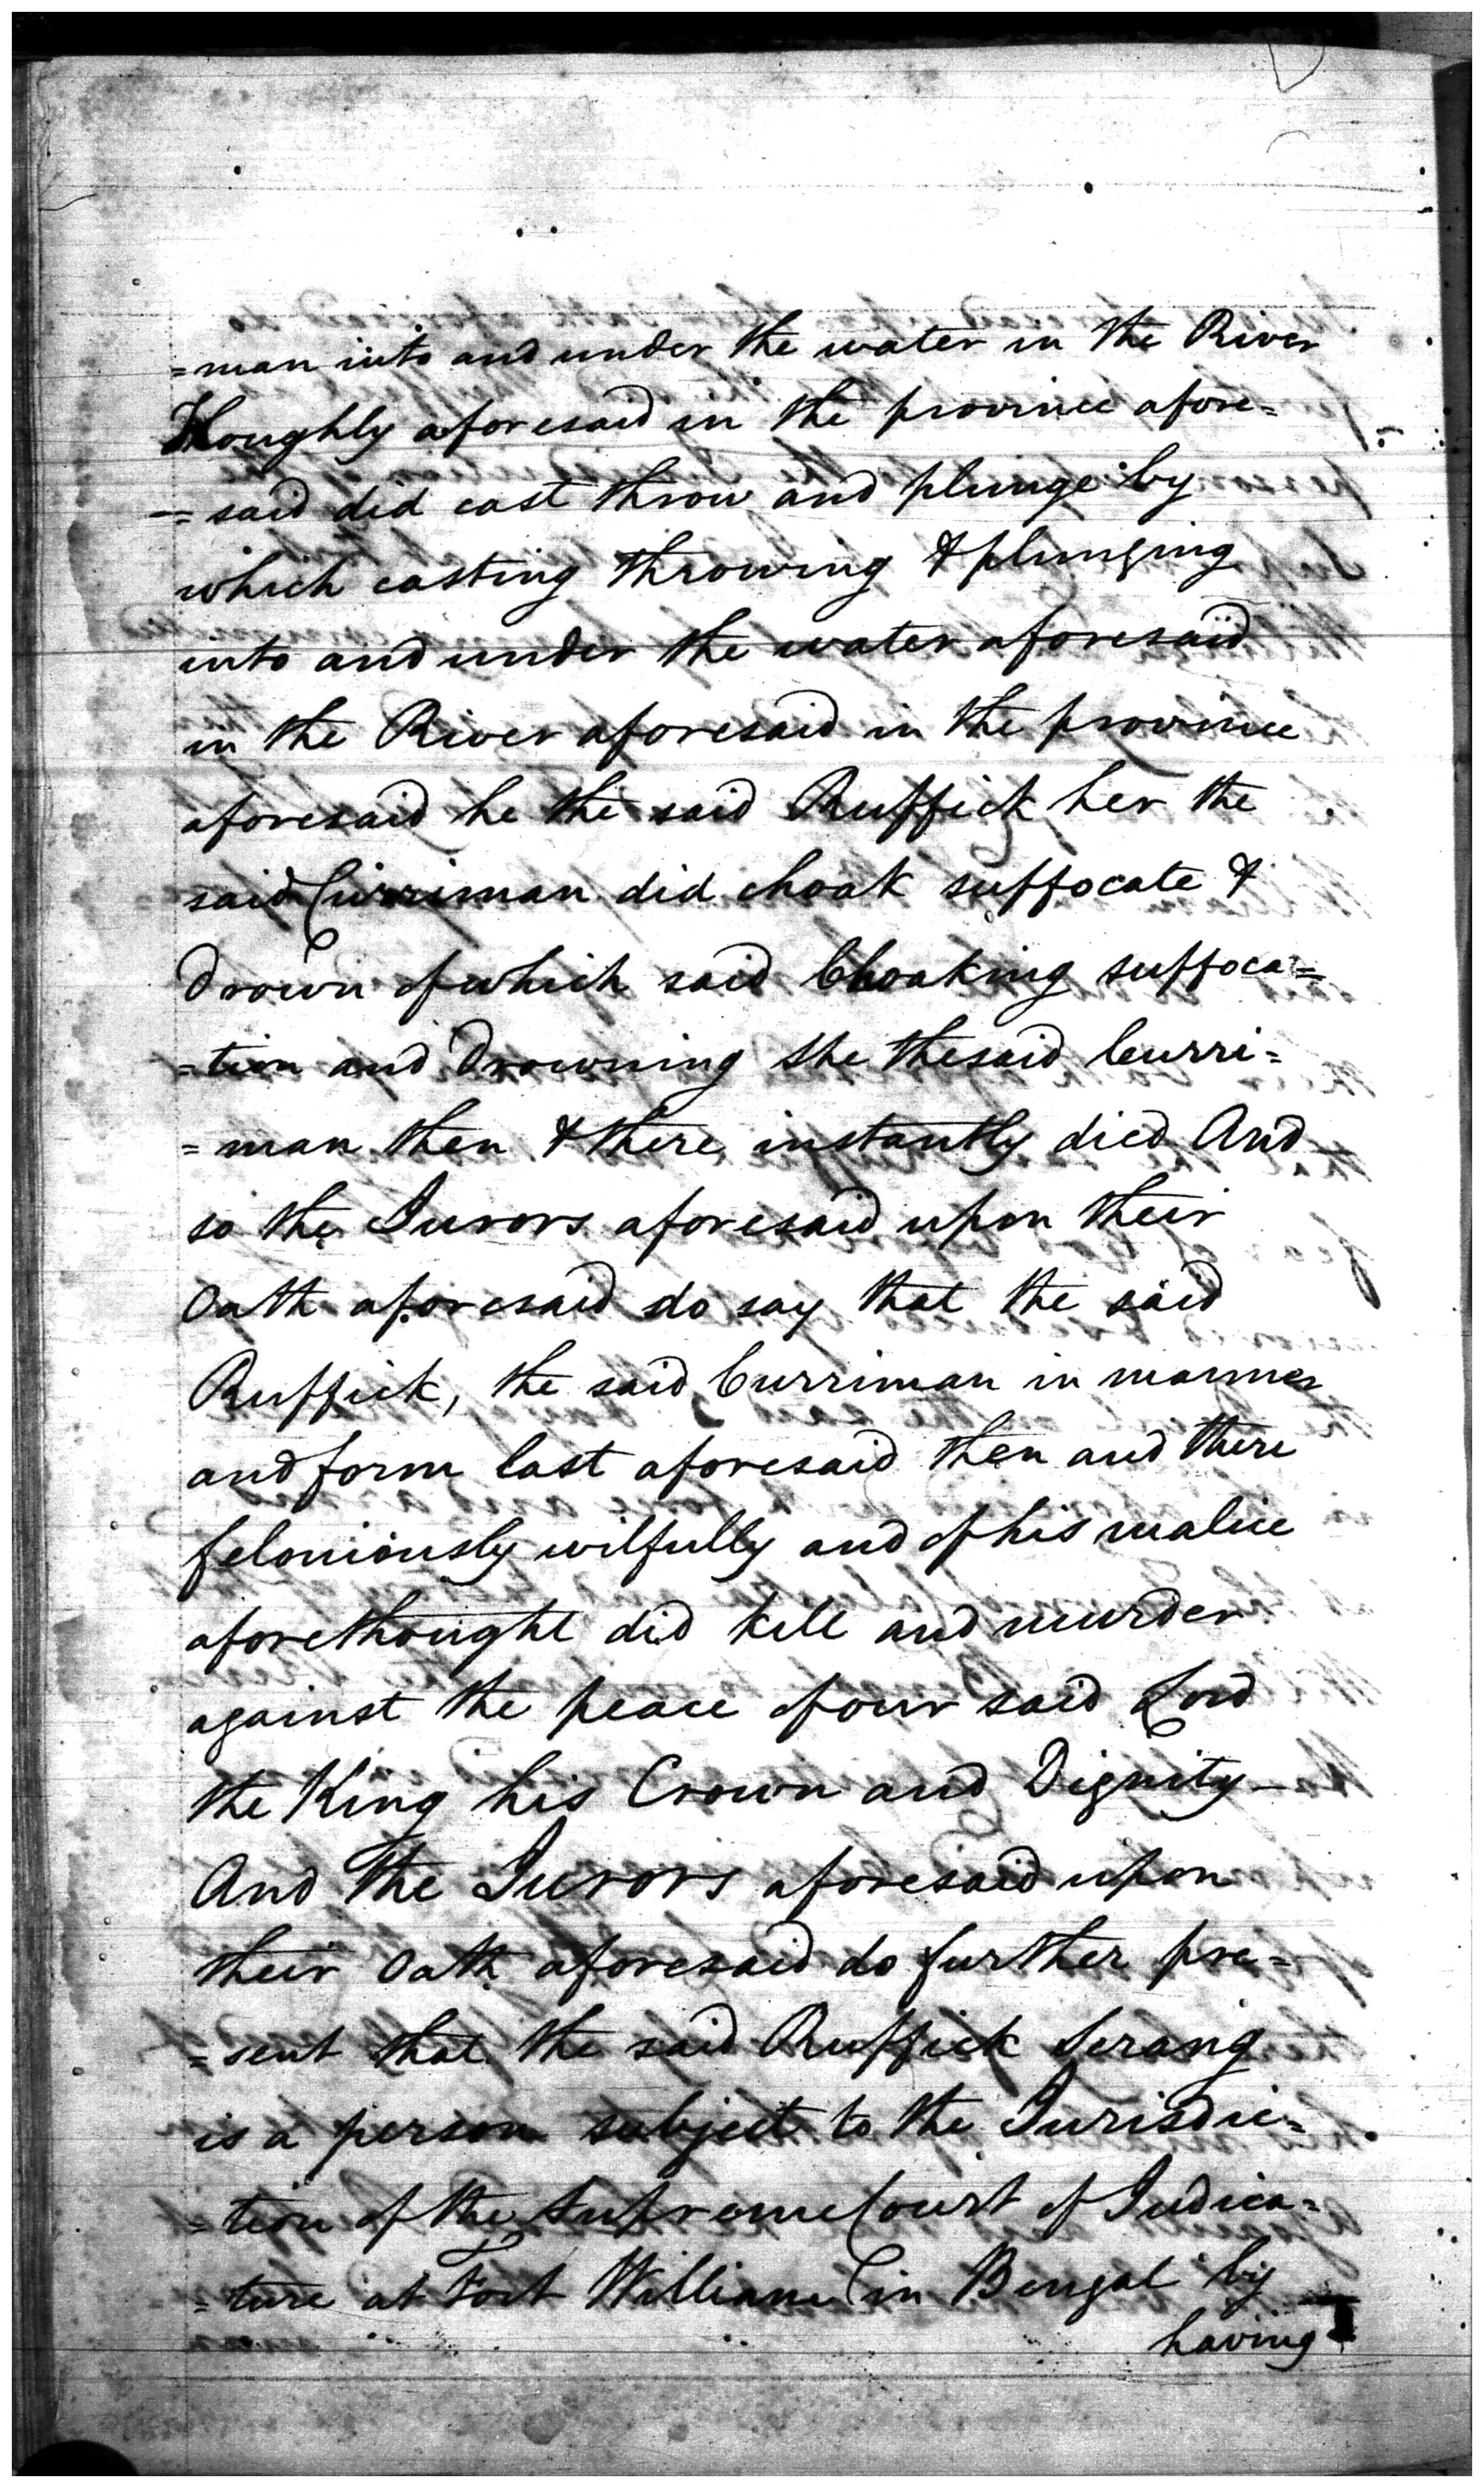 =man into and under the water in the River
Houghly aforesaid in the province afore=
=said did cast throw and plunge by
which casting throwing & plunging
into and under the water aforesaid
in the River aforesaid in the province
aforesaid he the said Ruffick her the
said Curriman did choak suffocate &
Drown of which said Choaking suffoca=
=tion and Drowning she the said Curri=
=man then & there instantly died And
so the Jurors aforesaid upon their
Oath aforesaid do say that the said
Ruffick, the said Curriman in manner
and form last aforesaid then and there
feloniously wilfully and of his malice
aforethought did kill and murder
against the peace of our said Lord
the King his Crown and Dignity—
And the Jurors aforesaid upon
their Oath aforesaid do further pre=
=sent that the said Ruffick Serang
is a person subject to the Jurisdic=
=tion of the Supreme Court of Judica=
=ture at Fort William in Bengal by
having